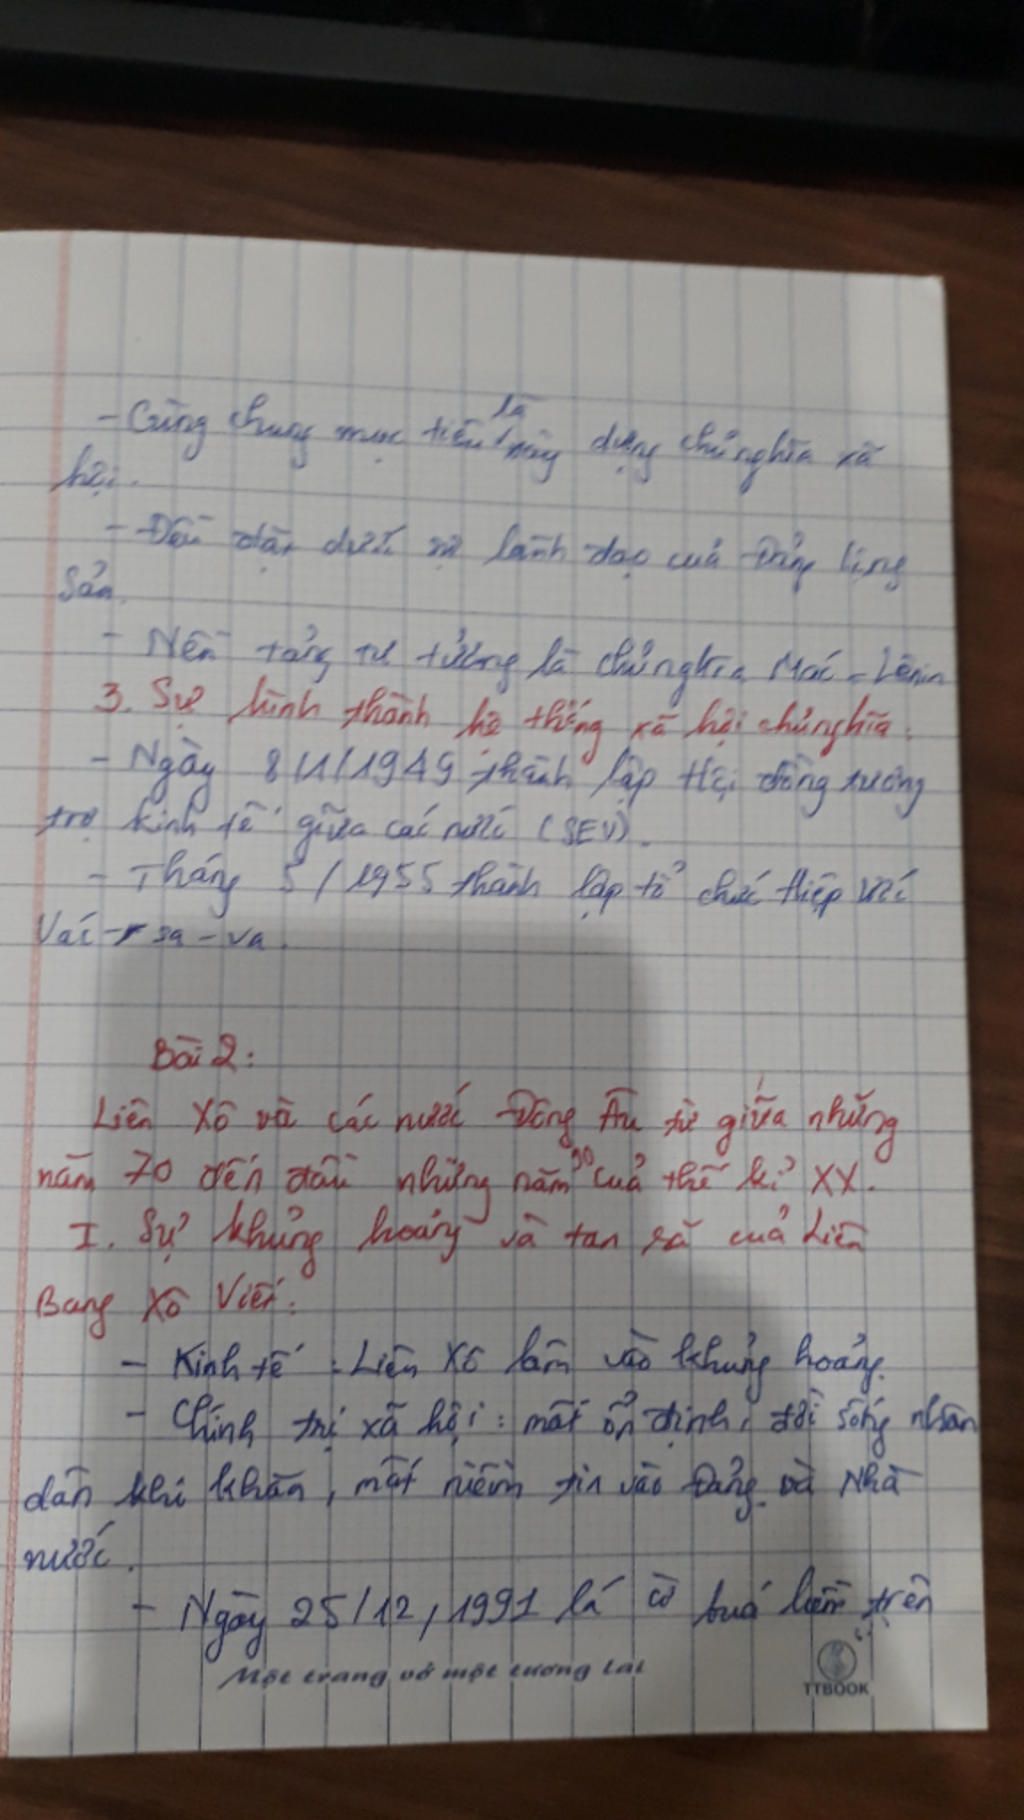 - Cùng chung mục tiêu là xây dựng chủ nghĩa xã
hội.
- Đều đặt dưới sự lãnh đạo của Đảng Cộng
Sản.
- Nền tảng tư tưởng là chủ nghĩa Mác - Lênin
3. Sự hình thành hệ thống xã hội chủ nghĩa.
- Ngày 8/1/1949 thành lập Hội đồng tương
trợ kinh tế giữa các nước (SEV).
- Tháng 5/1955 thành lập tổ chức Hiệp ước
Vác-sa-va.
Bài 2:
Liên Xô và các nước Đông Âu từ giữa những
năm 70 đến đầu những năm 90 của thế kỉ XX.
I. Sự khủng hoảng và tan rã của Liên
Bang Xô Viết:
- Kinh tế: Liên Xô lâm vào khủng hoảng.
- Chính trị xã hội: mất ổn định, đời sống nhân
dân khó khăn, mất niềm tin vào Đảng và Nhà
nước.
- Ngày 25/12/1991 lá cờ búa liềm trên
Một trang vở một tương lai
TTBOOK